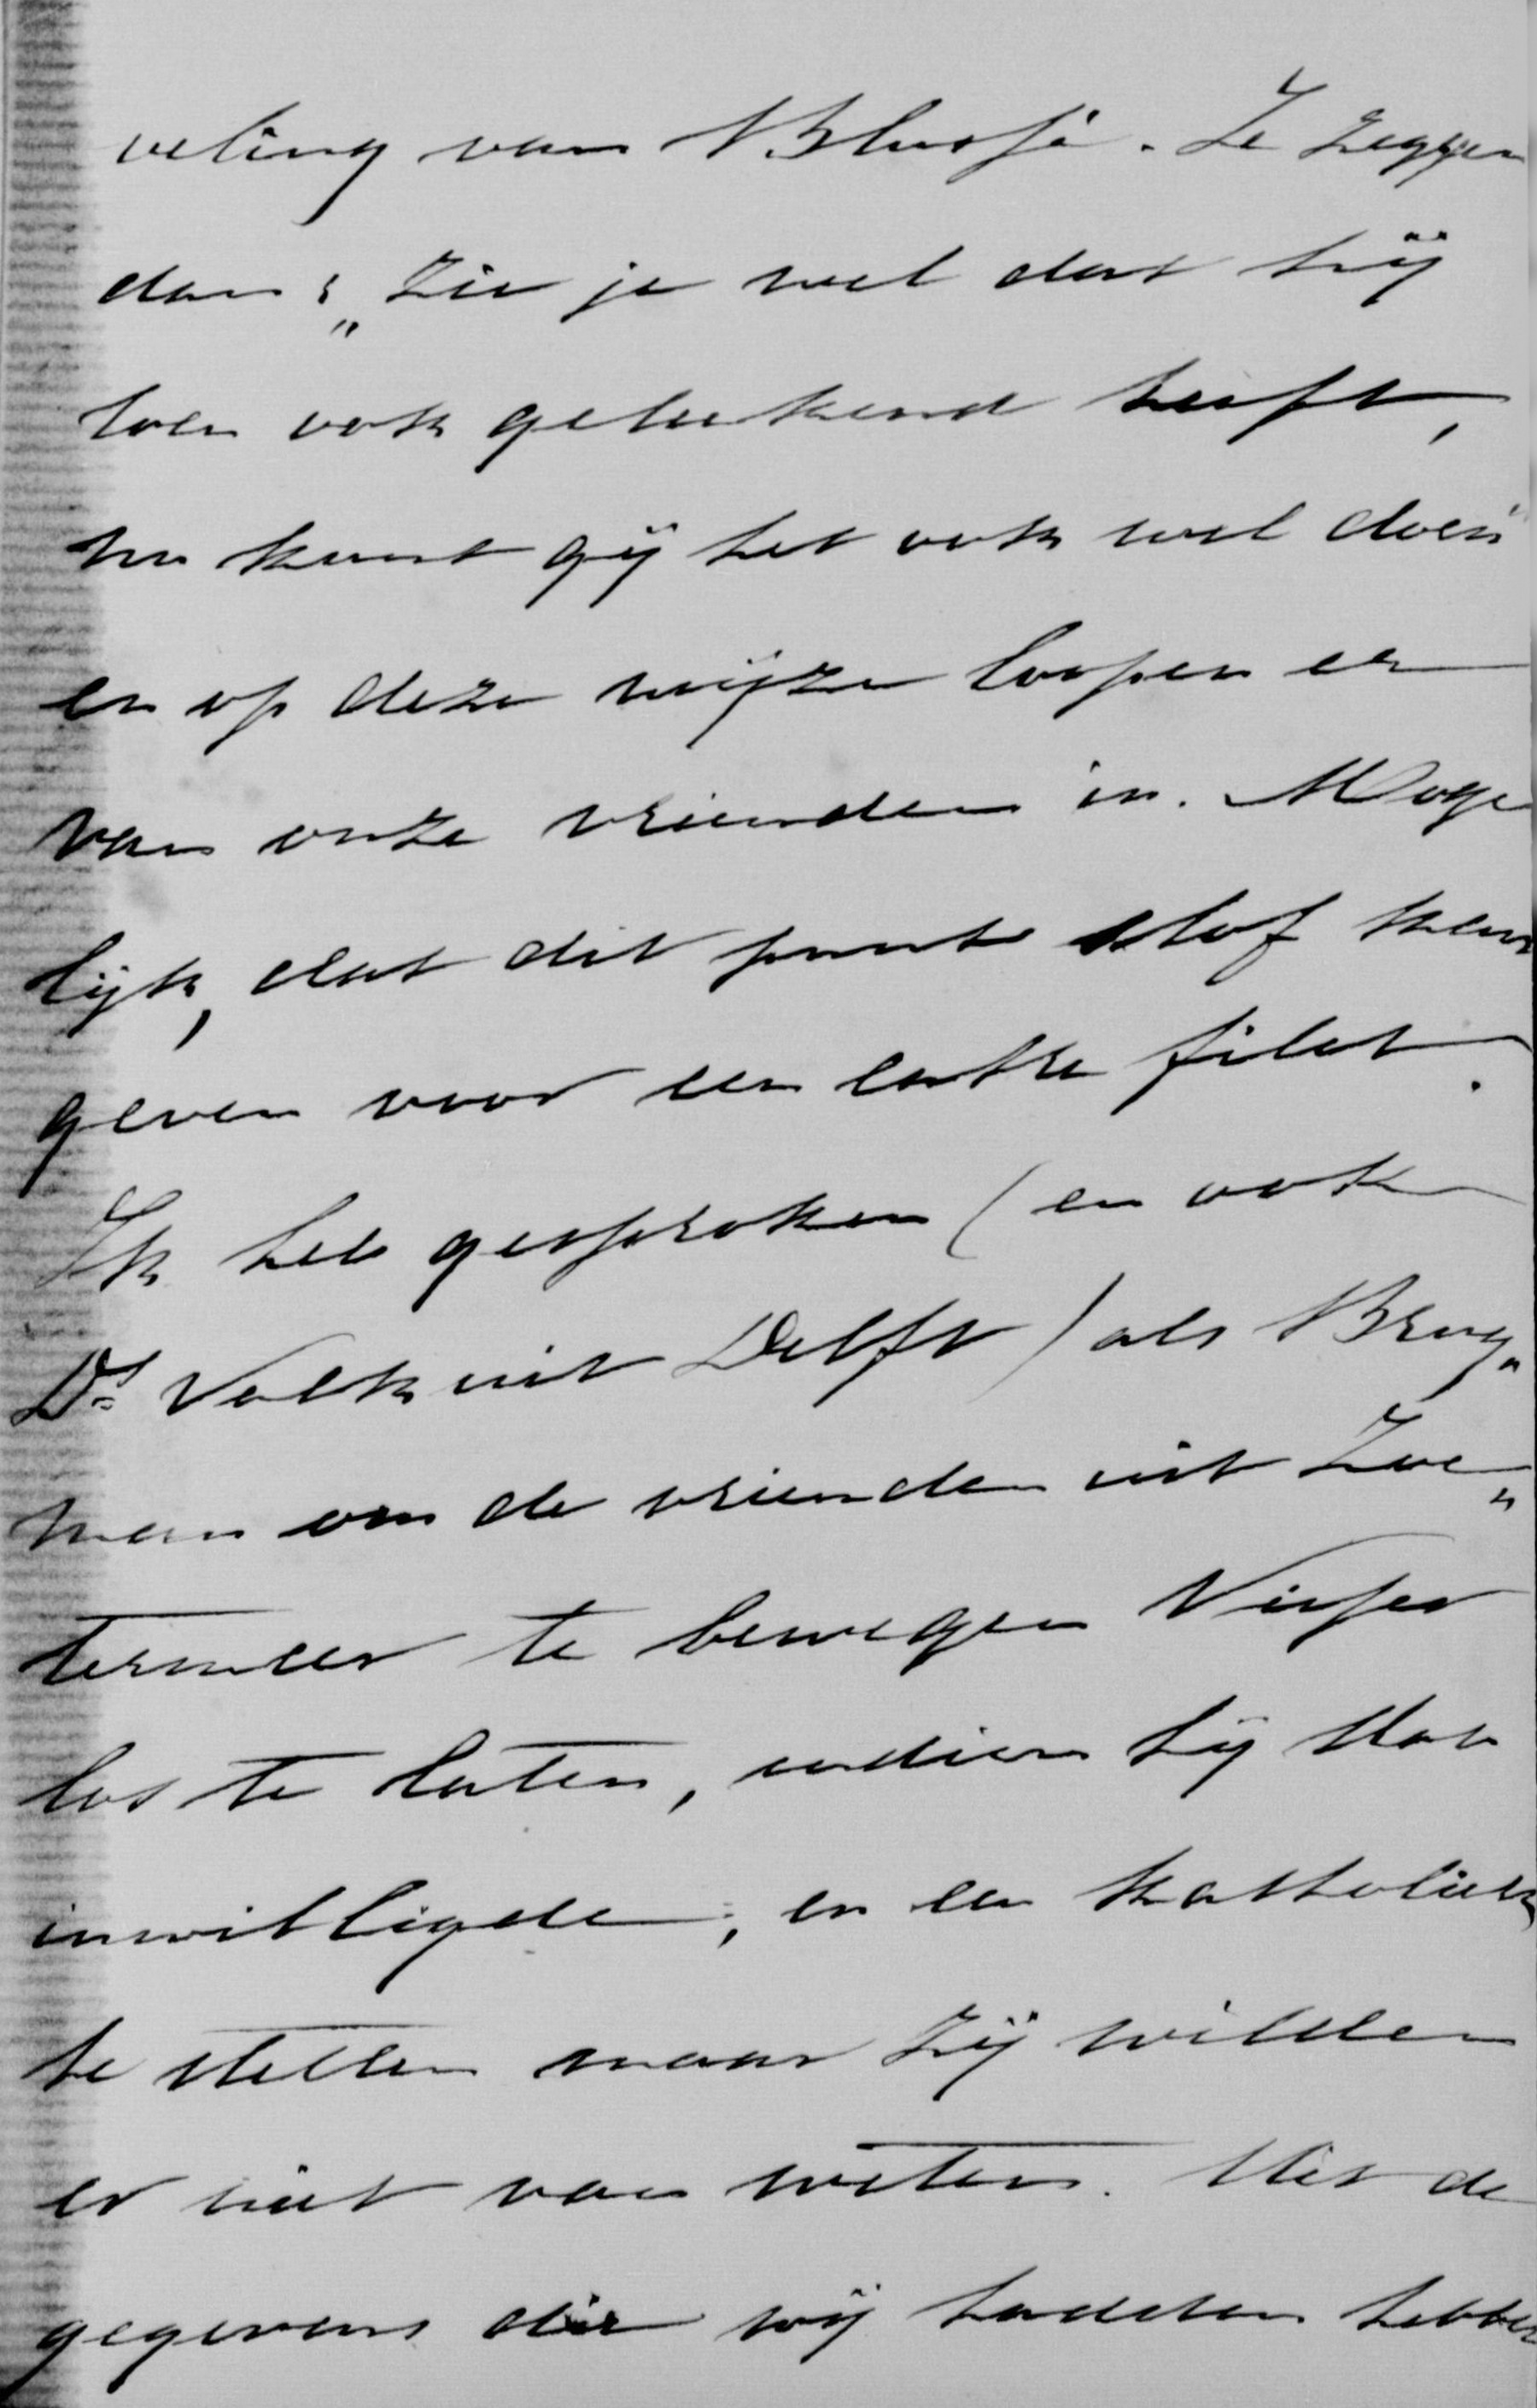 veling van Bluosé. Ze zeggen
dan: „Zie je wel dat hij
toen ook geteekend heeft,
nu kunt gij het ook wel doen"
en op deze wijze loopen er
van onze vrienden in. Moge
lijk, dat dit punt stof kan
geven voor een entre filet.
Ik heb gesproken (en ook
Ds Valk uit Delft) als Brug„
man om de vrienden uit Zoe„
termeer te bewegen Vis
los te laten, indien hij niet
inwilligde, en een Katholiek
te stellen maar zij wilden
er niet van weten. Met de
gegevens die wij hadden hebben